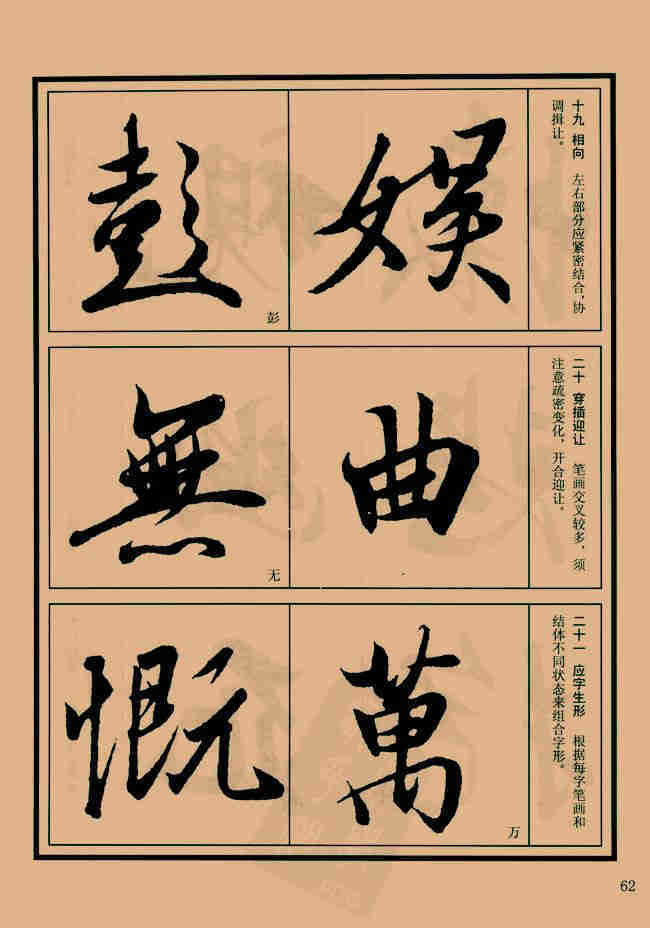 十九 相向 左右部分应紧密结合,协
调揖让。
娱
彭
彭
二十 穿插迎让 笔画交叉较多,须
注意疏密变化,开合迎让。
曲
無
无
二十一 应字生形 根据每字笔画和
结体不同状态来组合字形。
萬
万
慨
62